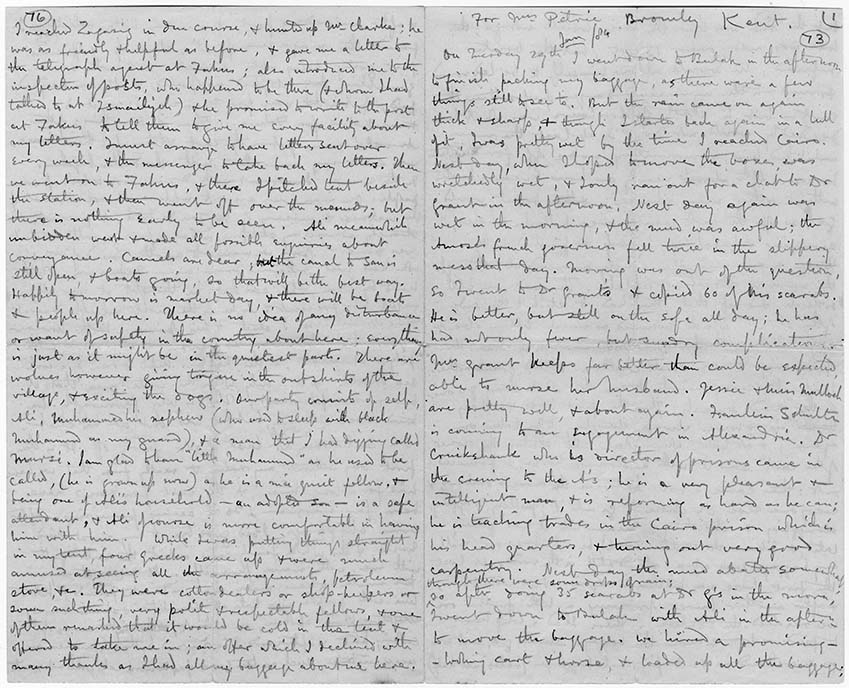 76
I reached Zagazig in due course, & hunted up Mr Clarke; he
was as friendly & helpful as before, & gave me a letter to
the telegraph agent at Fakus; also introduced me to the
inspector of posts, who happened to be there (& whom I had
talked to at Ismailiyeh) & he promised to write to the post
at Fakus to tell them to give me every facility about
my letters. I must arrange to have letters sent over
every week, & the messenger to take back my letters. Then
we went on to Fakus, & there I pitched tent beside
the station, & then went off over the mounds; but
there is nothing early to be seen. Ali meanwhile
unbidden went & made all possible enquiries about
conveyance. Camels are dear, but the canal to San is
still open, & boats going, so that will be the best way.
Happily tomorrow is market day, & there will be boats
& people up here. There is no idea of any disturbance
or want of safety in the country about here: everything
is just as it might be in the quietest parts. There are
wolves however giving tongue in the outskirts of the
village, & exciting the dogs. Our party consists of self,
Ali, Muhammed his nephew (who used to sleep with black
Muhammed as my guard), & a man that I had digging called
Mursi. I am glad to have "little Muhammed" as he used to be
called, (he is grown up now) as he is a nice quiet fellow, &
being one of Ali's household — an adopted son — is a safe
attendant, & Ali of course is more comfortable in having
him with him. While I was putting things straight
in my tent four Greeks came up & were much
amused at seeing all the arrangements, petroleum
stove, &c. They were cotton dealers or shop-keepers or
some such thing, very polite & respectable fellows, & one
of them remarked that it would be cold in the tent &
offered to take me in; an offer which I declined with
many thanks as I had all my baggage about me here.
For Mrs Petrie Bromley Kent. 1
73
Jan /84
On Tuesday 29th I went down to Bulak in the afternoon
to finish packing my baggage, as there were a few
things still to see to. But the rain came on again
thick & sharp, & though I started back again in a lull
of it, I was pretty wet by the time I reached Cairo.
Next day, when I hoped to move the boxes, was
wretchedly wet, & I only ran out for a chat to Dr
Grant in the afternoon. Next day again was
wet in the morning, & the mud was awful; the
French governess fell twice in the slippery
mess that day. Moving was out of the question,
so I went to Dr Grants & copied 60 of his scarabs.
He is better, but still on the sofa all day; he has
had not only fever, but sundry complications.
Mrs Grant keeps far better than could be expected
able to nurse her husband. Jessie & Miss
are pretty well, & about again. Fraulein Schultz
is coming to an engagement in Alexandria. Dr
Cruikshank who is director of prisons came in
the evening to the G's; he is a very pleasant &
intelligent man, & is reforming as hard as he can;
he is teaching trades in the Cairo prison which is
his head quarters, & turning out very good
carpentry. Next day the mud abated somewhat
though there were some drops of rain;
so after doing 35 scarabs at Dr G's in the morn,
I went down to Bulak with Ali in the after-
to move the baggage. We hired a promising-
-looking cart & horse, & loaded up all the baggage,